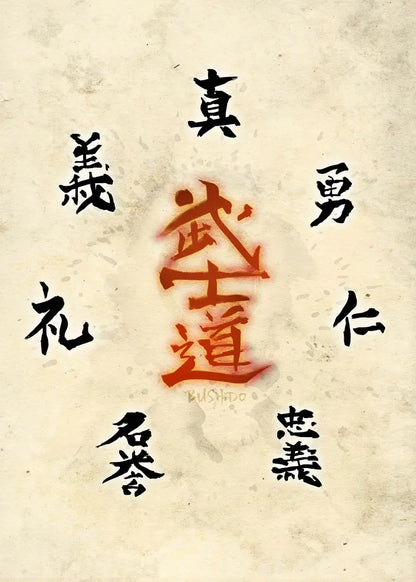 真
義
勇
武士道
BUSHIDO
礼
仁
名誉
忠義